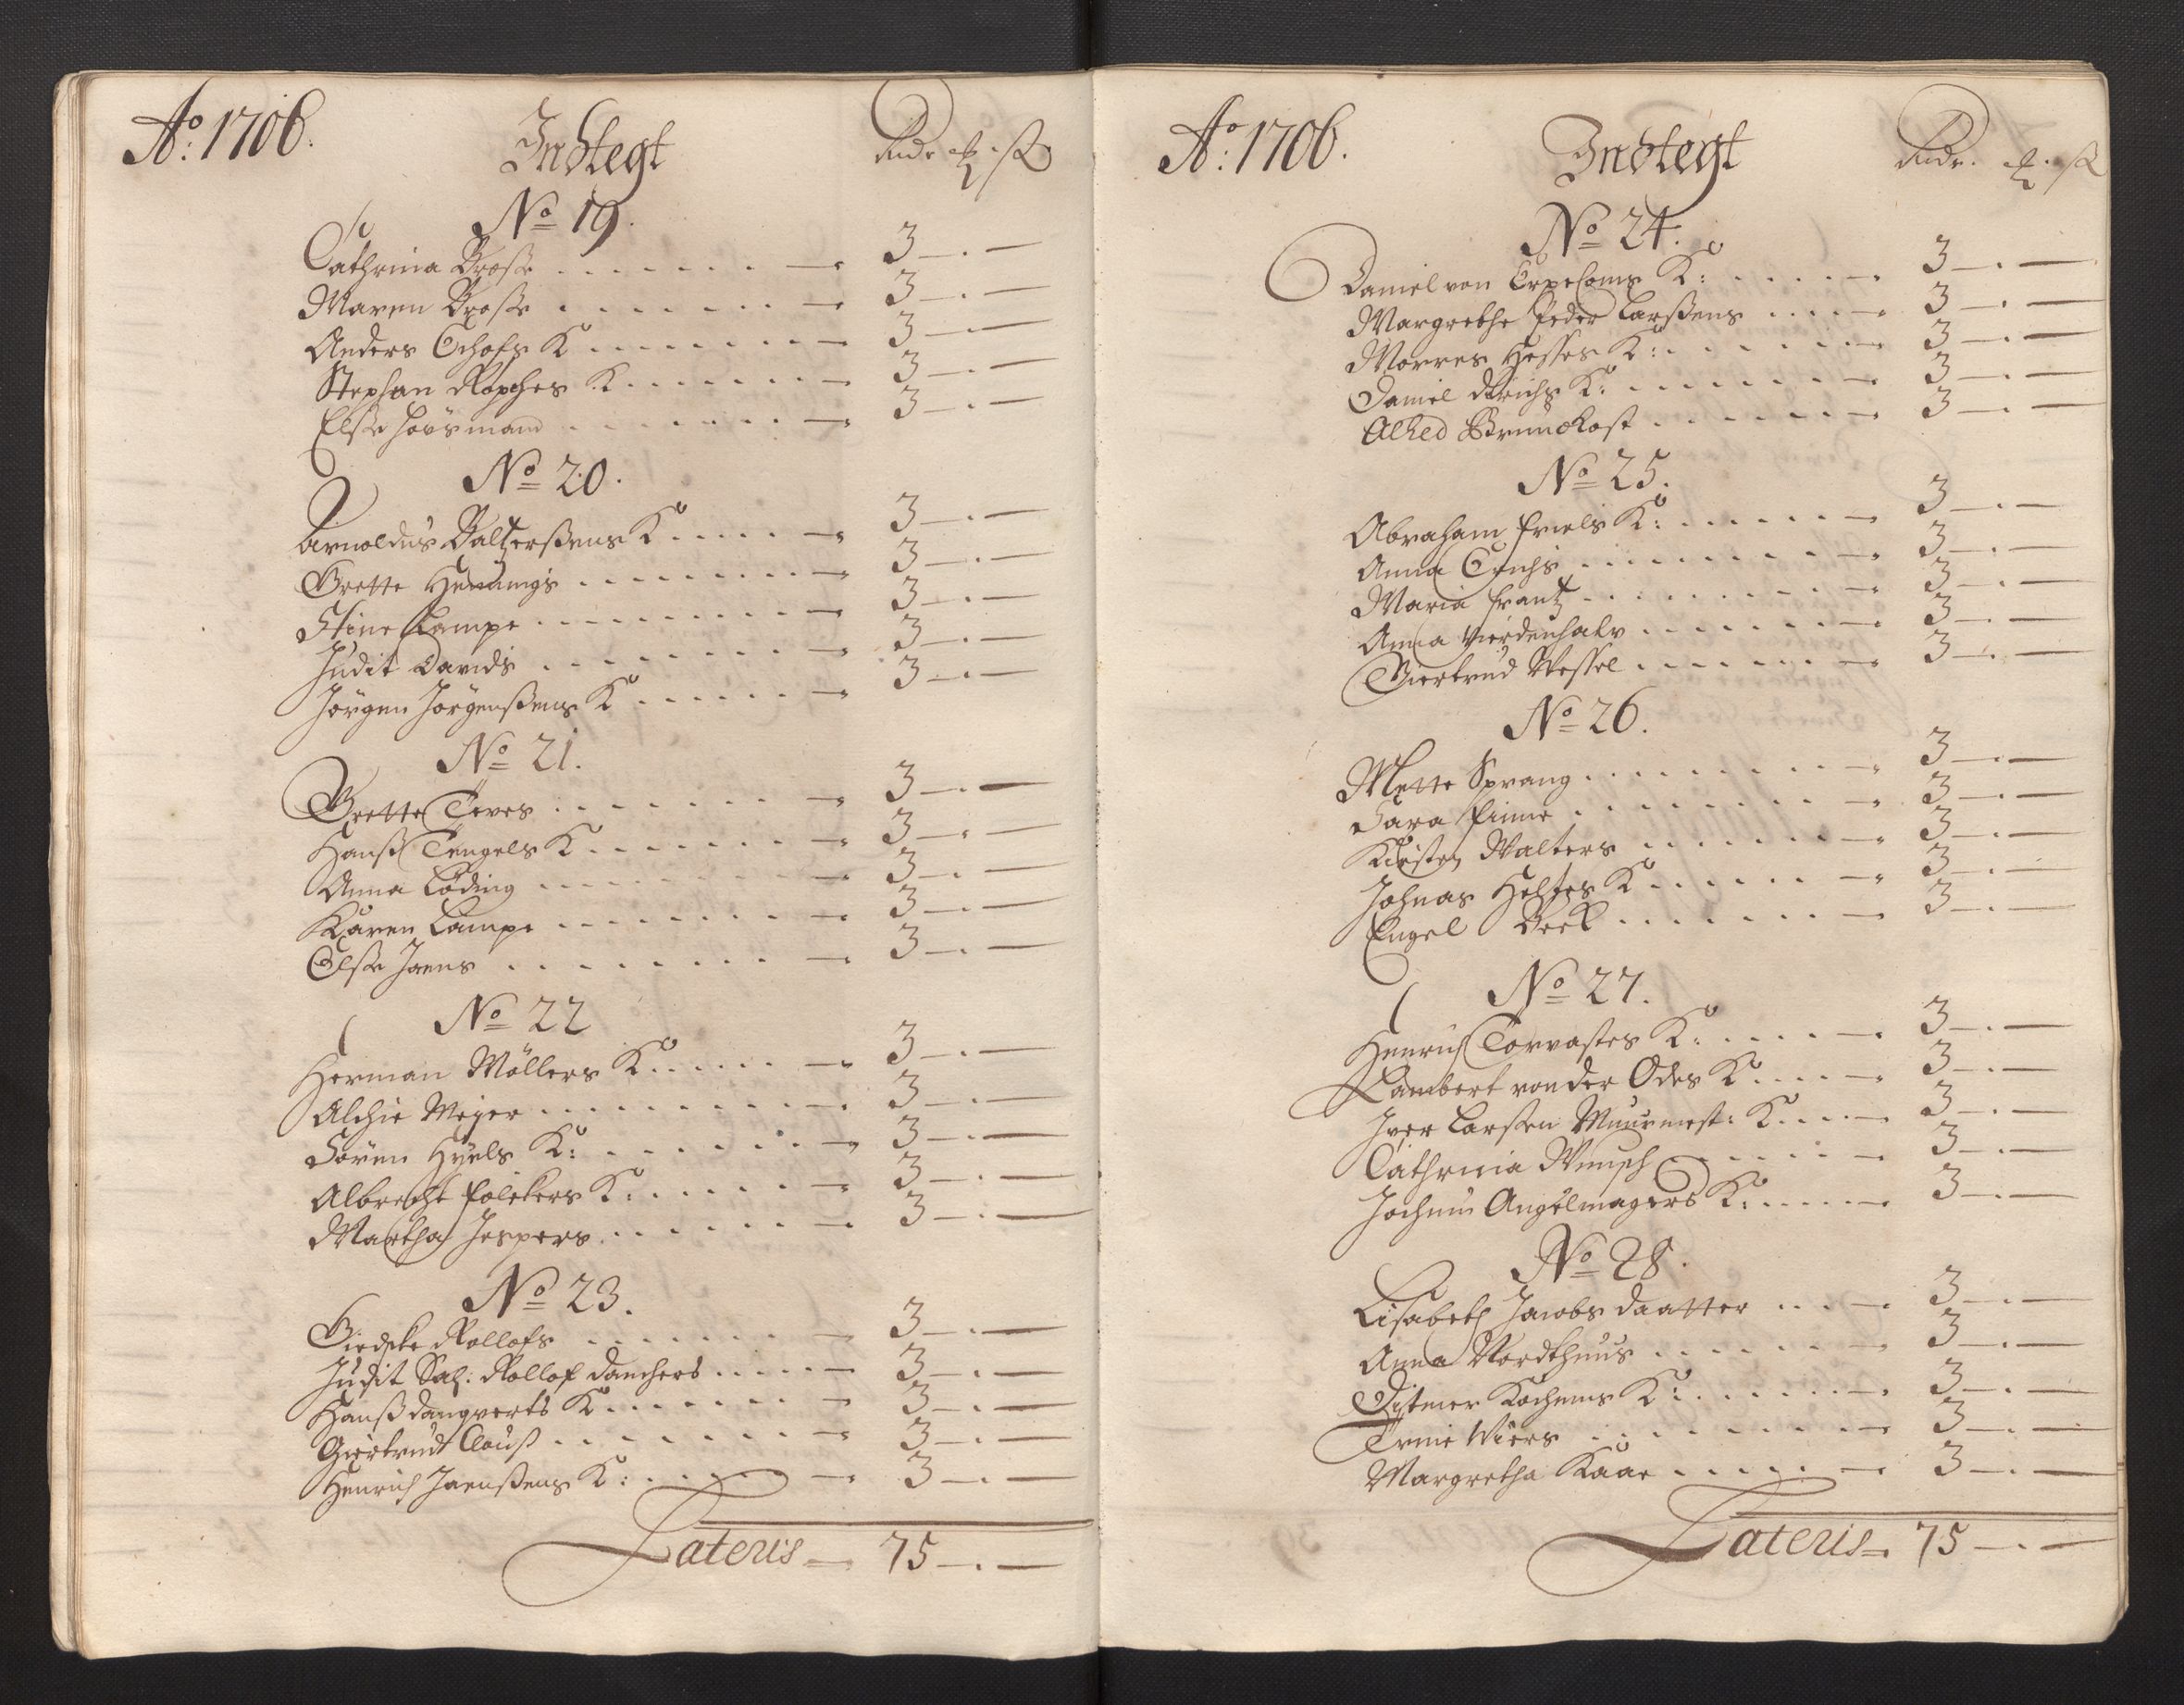 Ao: 1706.
Indtegt
Rdr ꝳ ß
No 19.
Cathrina Brosse . . . . . . . — 3 — . —
Maren Brosse . . . . . . . — 3 — . —
Anders K . . . . . . . . — 3 — . —
Stephan K . . . . . . . — 3 — . —
Elsse Housmand . . . . . . . — 3 — . —
No 20.
Arnoldus Baltzerssens Ko . . . . . — 3 — . —
Grette Hennings . . . . . . . . — 3 — . —
Stine Lampe . . . . . . . . — 3 — . —
Judit Davids . . . . . . . . — 3 — . —
Jörgen Jörgenssens Ko . . . . . . — 3 — . —
No 21.
Grette Teves . . . . . . . — 3 — . —
Hanss Tengels K . . . . . . . — 3 — . —
Anna Löding . . . . . . . . — 3 — . —
Karen Lampe . . . . . . . . — 3 — . —
Elsse Jaens . . . . . . . . — 3 — . —
No 22
Herman Möllers Ko . . . . . . — 3 — . —
Alchie Meyer . . . . . . . . . — 3 — . —
Sören Hyels Ko: . . . . . . . — 3 — . —
Albrecht Folckers K: . . . . . . — 3 — . —
Martha Jespers . . . . . . . — 3 — . —
No 23.
Rollofs . . . . . . . — 3 — . —
Judit Sal: Rollof Danchers . . . . . — 3 — . —
Hanss Dangverts K . . . . . . . — 3 — . —
Giertrudt Clauss . . . . . . . . — 3 — . —
Henrich Jaenssens K: . . . . . — 3 — . —
Lateris — 75 — . —
Ao: 1706.
Indtegt
Rdr. ꝳ. ß
No 24.
Daniel von Erpecoms Ko: . . . . . — 3 — . —
Margrethe Peder Larssens . . . . — 3 — . —
Morres Hesses Ko: . . . . . . — 3 — . —
Daniel Dirichs K: . . . . . . . — 3 — . —
Alhed Brunckost . . . . . . — 3 — . —
No 25.
Abraham Friels Ko: . . . . . . — 3 — . —
Anna . . . . . . . . — 3 — . —
Maria Frantz . . . . . . . . — 3 — . —
Anna Vierdenhalv . . . . . . — 3 — . —
Giertrud Wessel . . . . . . . — 3 — . —
No 26.
Mette Sprang . . . . . . . . — 3 — . —
Sara Finne . . . . . . . . — 3 — . —
Kirsten Walters . . . . . . . — 3 — . —
Johnas Ko . . . . . . — 3 — . —
Engel Beck . . . . . . . — 3 — . —
No 27.
Henrich Torvastes Ko: . . . . — 3 — . —
Lambert von der Odes Ko . . . . — 3 — . —
Jver Larssen Muurmest: K . . . . — 3 — . —
Cathrina Wunsch . . . . . . — 3 — . —
Jochum Angelmagers K: . . . . . — 3 — . —
No 28.
Lisabeth Jacobs daatter . . . — 3 — . —
Anna Nordthuus . . . . . . . — 3 — . —
Ditmer Kochems K: . . . . . . — 3 — . —
Trine Wiers . . . . . . . . — 3 — . —
Margretha Kaae . . . . . — 3 — . —
Lateris — 75 — . —